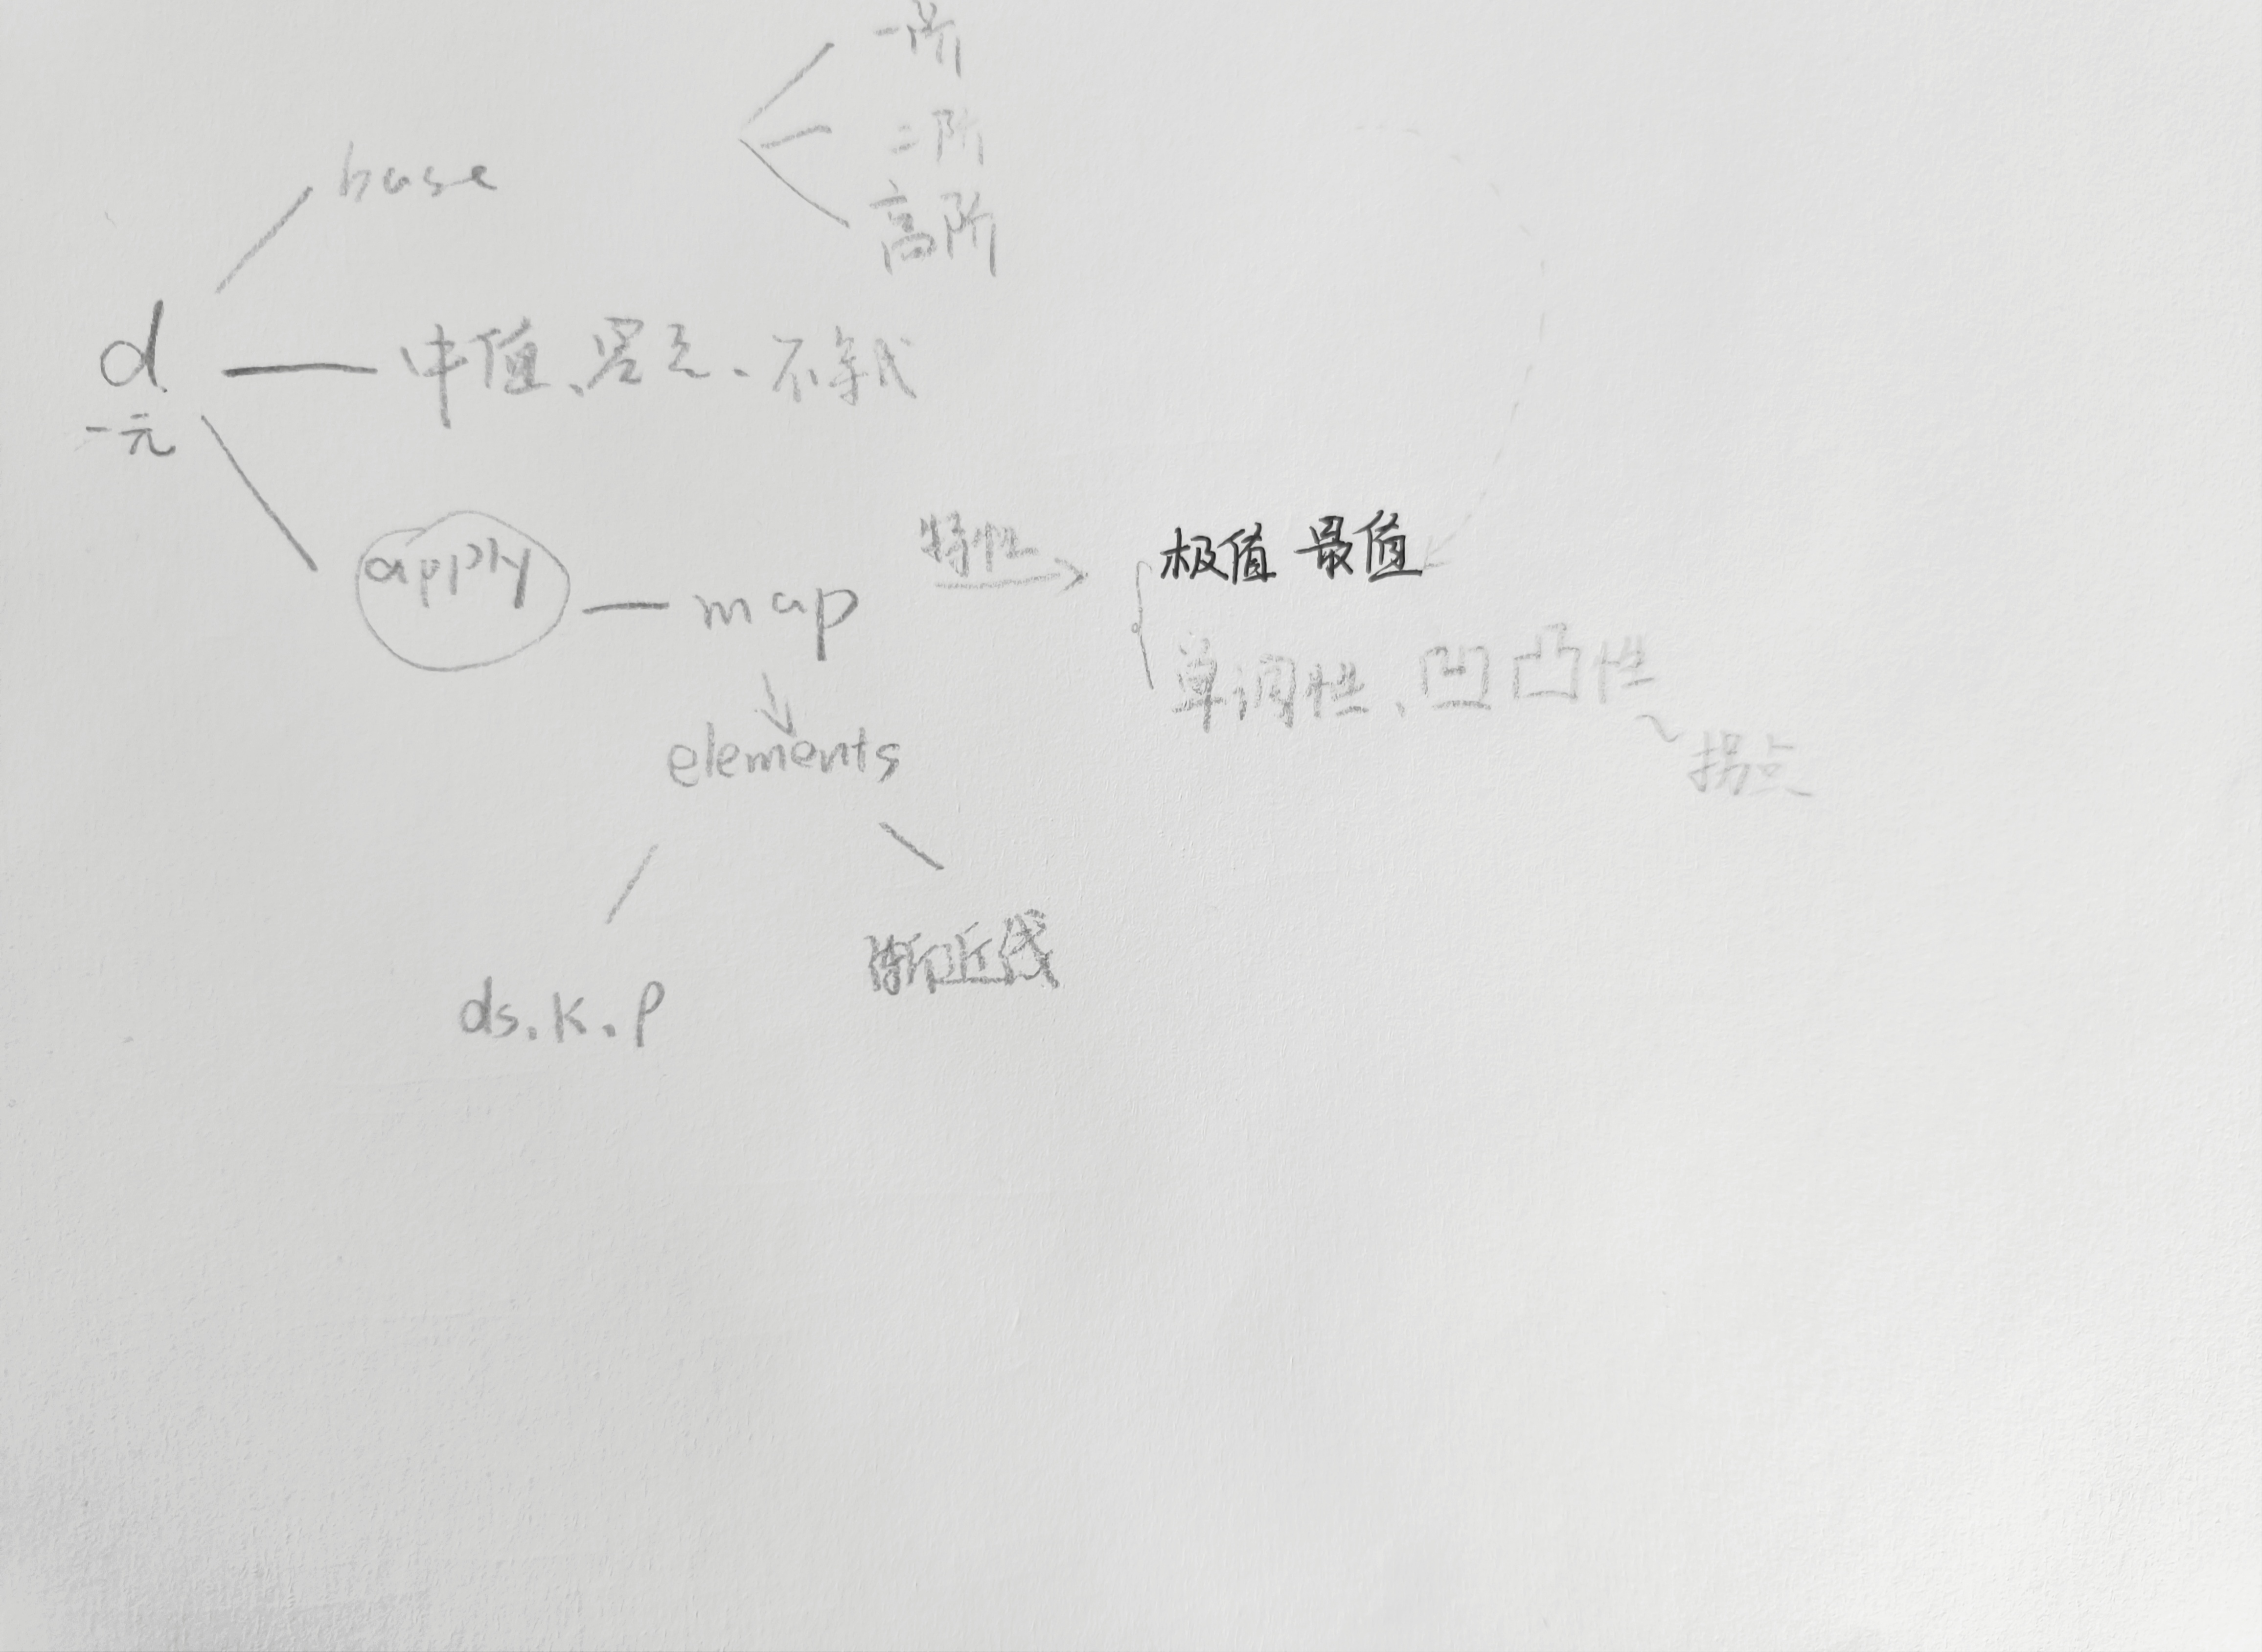 一阶
二阶
base
高阶
d
一元
中值、零点、不等式
apply
map
特性
极值 最值
单调性、凹凸性
拐点
elements
ds.k.ρ
渐近线